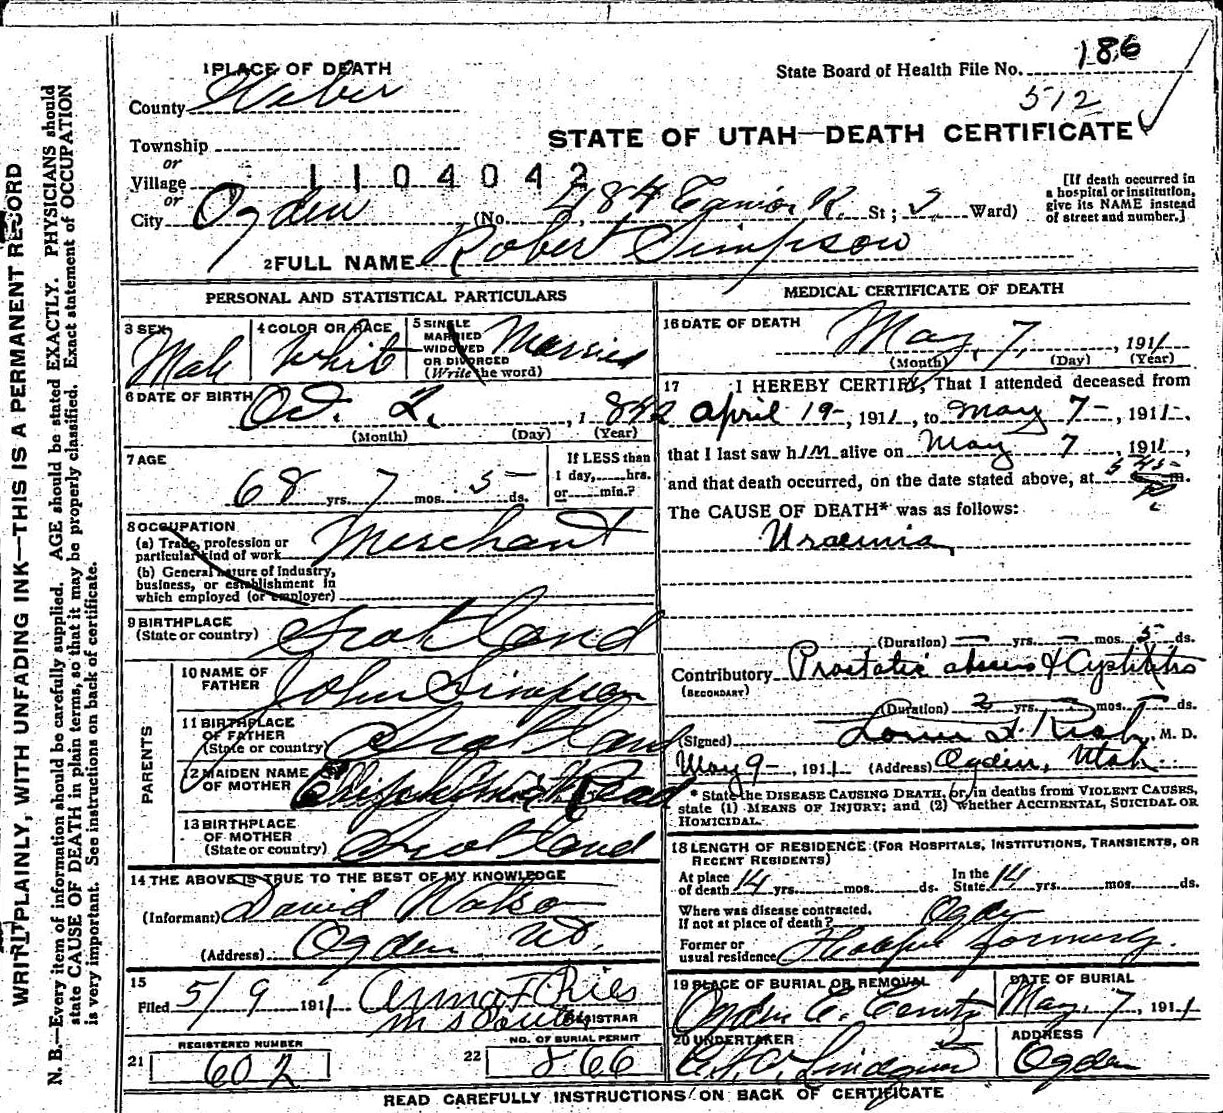 186
State Board of Health File No.
512
1 PLACE OF DEATH
County Weber
STATE OF UTAH—DEATH CERTIFICATE
Township
or
Village 1104042
or
City Ogden (No. 484 Canion R. St; 2 Ward)
[If death occurred in
a hospital or institution,
give its NAME instead
of street and number.]
2 FULL NAME Robert Simpson
PERSONAL AND STATISTICAL PARTICULARS
3 SEX Male
4 COLOR OR RACE White
5 SINGLE
MARRIED
WIDOWED
OR DIVORCED
(Write the word) Married
6 DATE OF BIRTH Oct. 2, 1842
(Month) (Day) (Year)
7 AGE
68 yrs. 7 mos. 5 ds.
If LESS than
1 day, hrs.
or min.?
8 OCCUPATION
(a) Trade, profession or
particular kind of work Merchant
(b) General nature of Industry,
business, or establishment in
which employed (or employer)
9 BIRTHPLACE
(State or country) Scotland
PARENTS
10 NAME OF
FATHER John Simpson
11 BIRTHPLACE
OF FATHER
(State or country) Scotland
12 MAIDEN NAME
OF MOTHER
13 BIRTHPLACE
OF MOTHER
(State or country) Scotland
14 THE ABOVE IS TRUE TO THE BEST OF MY KNOWLEDGE
(Informant) David Watson
(Address) Ogden Ut.
15
Filed 5/9 1911
REGISTRAR
REGISTERED NUMBER
21 602
NO. OF BURIAL PERMIT
22 866
MEDICAL CERTIFICATE OF DEATH
16 DATE OF DEATH
May, 7, 1911
(Month) (Day) (Year)
17 I HEREBY CERTIFY, That I attended deceased from
April 19-, 1911, to May 7-, 1911-,
that I last saw him alive on May 7, 1911,
and that death occurred, on the date stated above, at 5 45 m.
The CAUSE OF DEATH* was as follows:
Uraemia
(Duration) — yrs. — mos. 5 ds.
Contributory Prostatic abscess & Cystitis
(SECONDARY)
(Duration) 2 yrs. mos. ds.
(Signed) M. D.
May 9-, 1911 (Address) Ogden, Utah.
* State the DISEASE CAUSING DEATH, or, in deaths from VIOLENT CAUSES,
state (1) MEANS OF INJURY; and (2) whether ACCIDENTAL, SUICIDAL OR
HOMICIDAL.
18 LENGTH OF RESIDENCE (FOR HOSPITALS, INSTITUTIONS, TRANSIENTS, OR
RECENT RESIDENTS)
At place
of death 14 yrs. mos. ds.
In the
State 14 yrs. mos. ds.
Where was disease contracted,
if not at place of death? Ogden
Former or
usual residence formerly.
19 PLACE OF BURIAL OR REMOVAL
Ogden C. Cemty
DATE OF BURIAL
May, 7, 1911
20 UNDERTAKER
Lindquist
ADDRESS
Ogden
READ CAREFULLY INSTRUCTIONS ON BACK OF CERTIFICATE
WRITE PLAINLY, WITH UNFADING INK—THIS IS A PERMANENT RECORD
N. B.—Every item of information should be carefully supplied. AGE should be stated EXACTLY. PHYSICIANS should
state CAUSE OF DEATH in plain terms, so that it may be properly classified. Exact statement of OCCUPATION
is very important. See instructions on back of certificate.